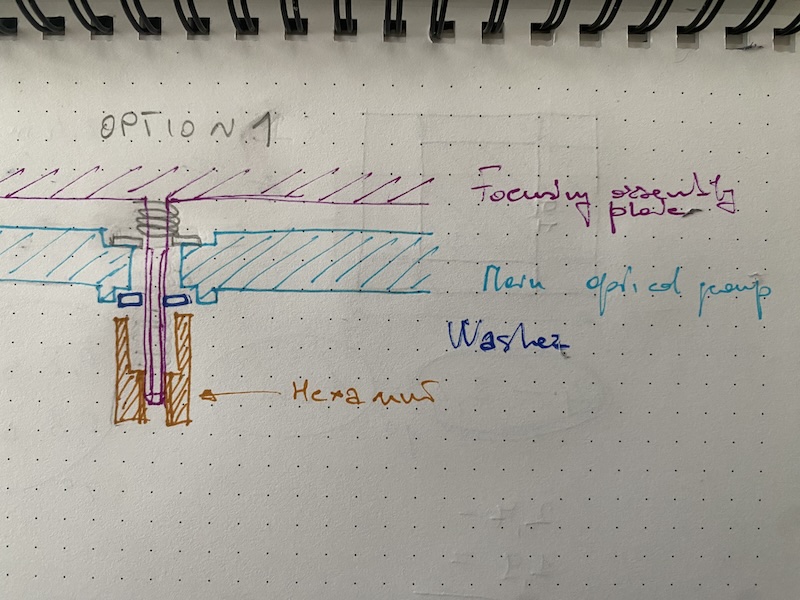 OPTION 1
Focusing assembly
plate
Main optical group
Washer
Hexa nut